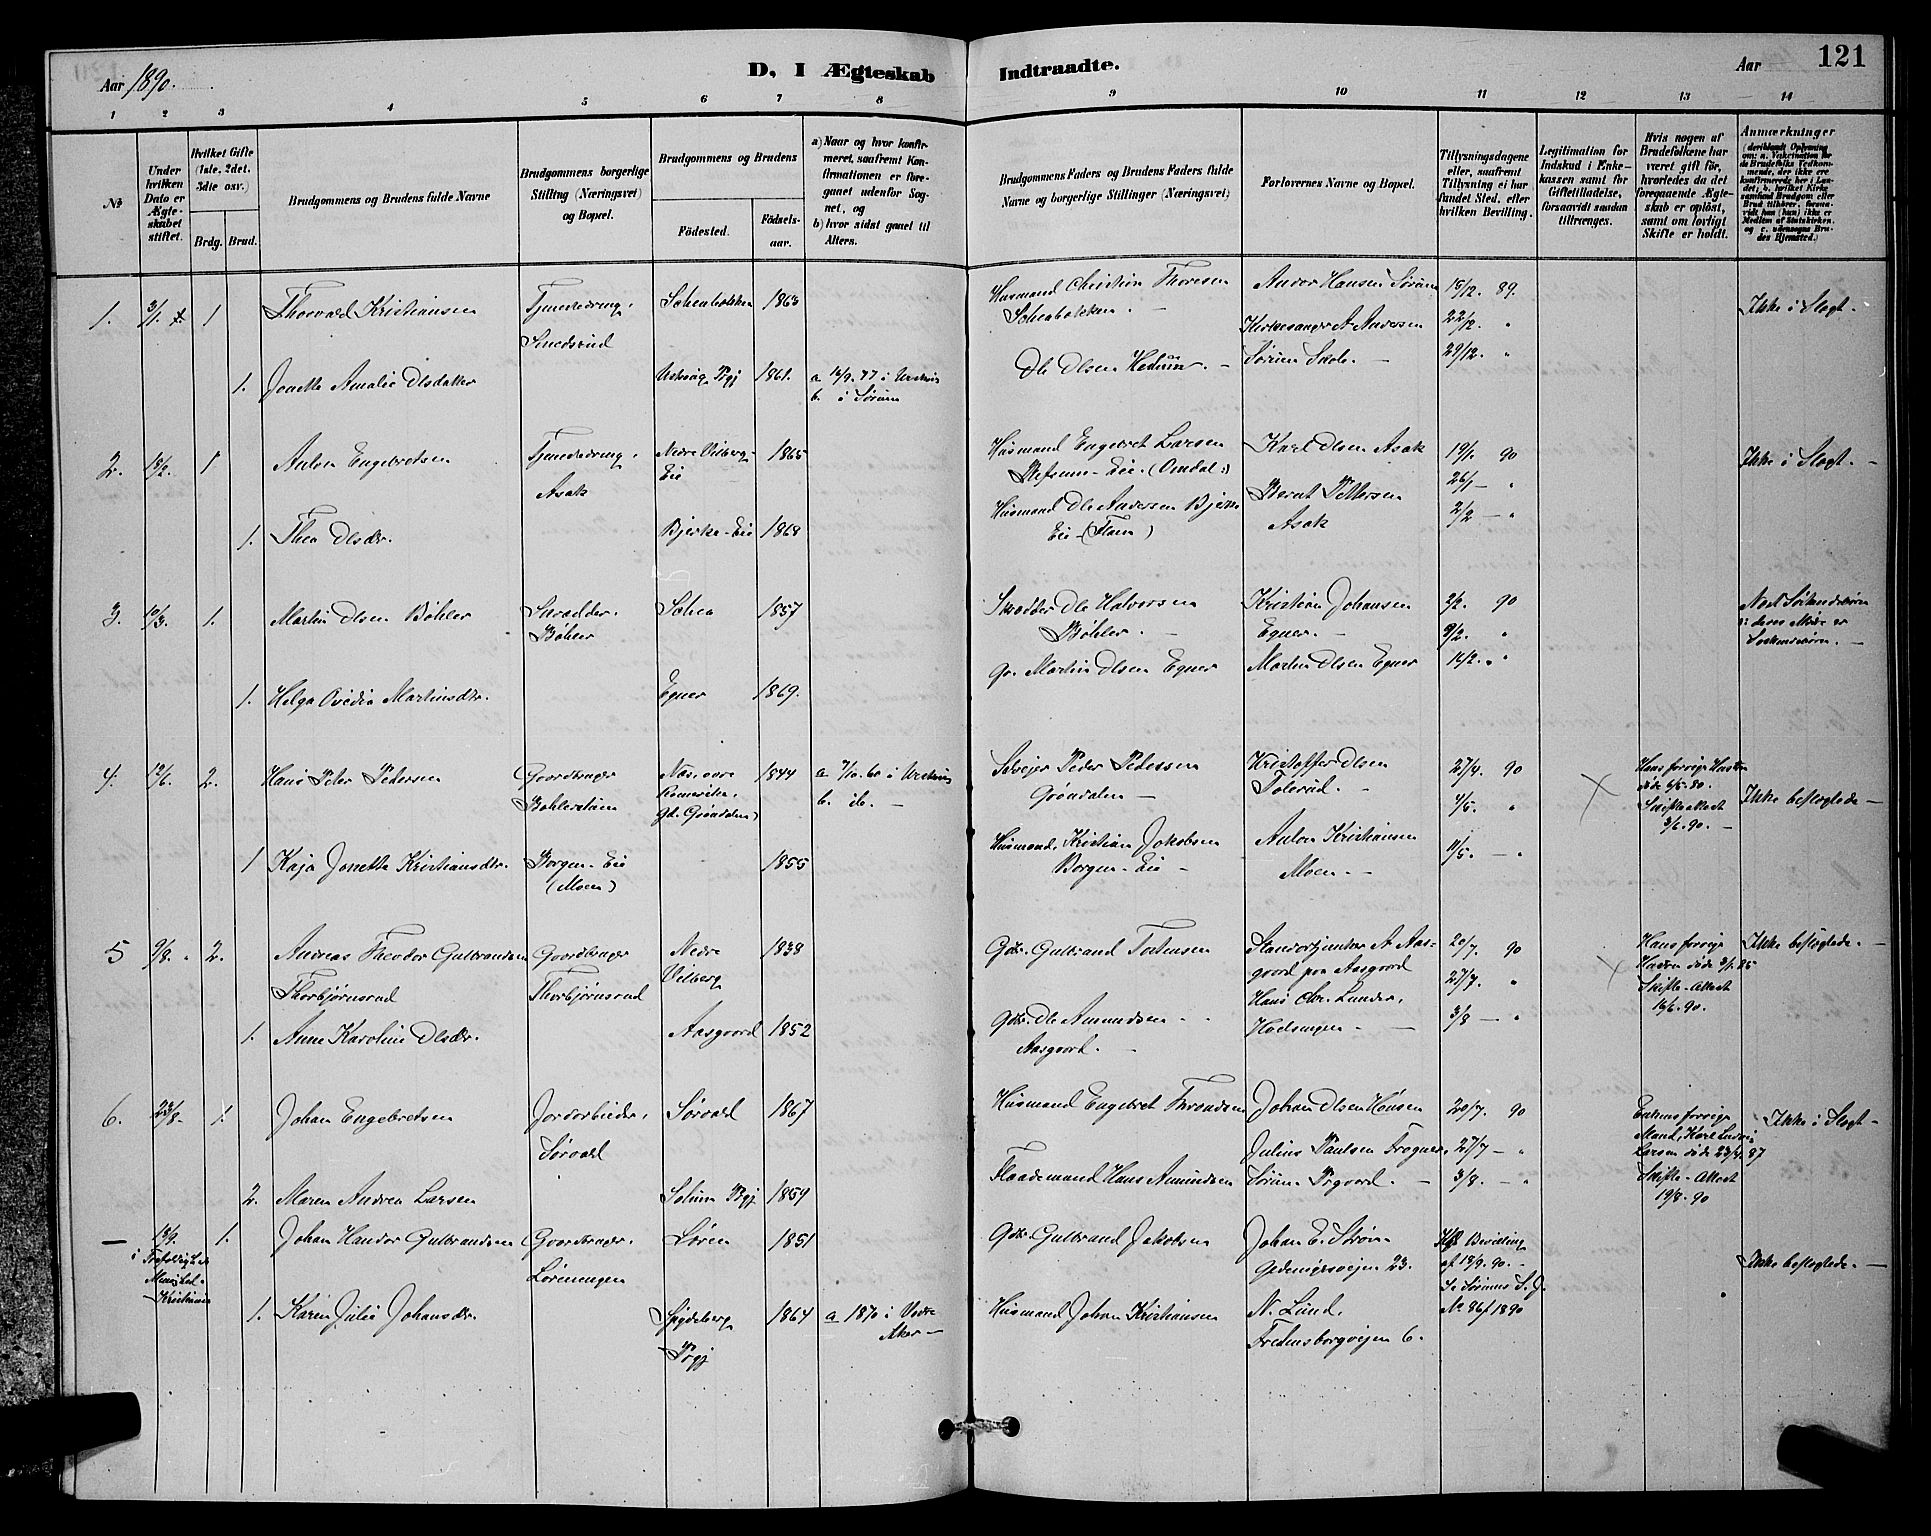 Aar 1890.
D, I Ægteskab Indtraadte.
Aar 121
1 2 3 4 5 6 7 8 9 10 11 12 13 14
No
Under hvilken Dato er Ægteskabet stiftet.
Hvilket Gifte (1ste, 2det, 3die osv.)
Brdg. Brud.
Brudgommens og Brudens fulde Navne
Brudgommens borgerlige Stilling (Næringsvei) og Bopæl.
Brudgommens og Brudens
Födested.
Födselsaar.
a) Naar og hvor konfirmeret, saafremt Konfirmationen er foregaaet udenfor Sognet, og
b) hvor sidst gaaet til Alters.
Brudgommens Faders og Brudens Faders fulde Navne og borgerlige Stillinger (Næringsvei)
Forlovernes Navne og Bopæl.
Tillysningsdagene eller, saafremt Tillysning ei har fundet Sted, efter hvilken Bevilling.
Legitimation for Indskud i Enkekassen samt for Giftetilladelse, forsaavidt saadan tiltrænges.
Hvis nogen af Brudefolkene har været gift för, hvorledes da det foregaaende Ægteskab er oplöst, samt om lovligt Skifte er holdt.
Anmærkninger (deriblandt Oplysning om: a. Vakcination for de Brudefolks Vedkommende, der ikke ere konfirmerede her i Landet; b. hvilket Kirkesamfund Brudgom eller Brud tilhörer, forsaavidt han (hun) ikke er Medlem af Statskirken, og c. udensogns Brudes Hjemsted.)
1. 3/1. 1 Thorvald Kristiansen Tjenestedreng, Sohenbakken 1863 Husmand Christian Thoresen Andor Hansen Sørum 15/12. 89. Ikke i Slægt. —
Smedsrud Sohenbakken. — Kirkesanger A Andersen 22/12. "
1. Jonette Amalie Olsdatter Urskoug Prgj 1861. a 14/9. 77 i Urskoug Ole Olsen — Sørum Skole. — 29/12. "
b. i Sørum
2. 1 Anton Engebretsen Tjenestedreng, Nedre Vilberg- 1865 Husmand Engebret Larsen Karl Olsen Asak 19/1. 90 Ikke i Slægt. —
Asak Eie Eie. (Omdal) 26/1 — "
1. Thea Olsdr. Bjerke-Eie 1868 Husmand Ole Andersen Bjerke Bernt Pettersen 2/2 — "
Eie — Asak
3. 10/3. 1. Martin Olsen Böhler Skrædder. 1857 Skrædder Ole Halvorsen Kristian Johansen 2/2. 90
Böhler Böhler. — Egner. — 9/2. "
1. Helga Ovidia Martinsdtr. Egner 1869. Martin Olsen Egner Martin Olsen Egner 16/2. " "
4. 12/6. 2. Hans Peter Pedersen Gaardbruger Nes, øvre 1844 a. 7/10. 60 i Urskoug Selveier Peder Pedersen Kristoffer Olsen 27/4. 90 Hans forrige Hustru
Böhlerstuen Romerike. b. ib. — Gröndalen — Tolerud. — 4/5. " döde 6/5. 80. Ikke beslægtede —
gd. Gröndalen) Skifte-Attest
3/6. 90. —
1 Kaja Jonette Kristiansdtr. Borgen-Eie 1855 Husmand, Kristian Jakobsen Anton Kristiansen 11/5. — "
(Moen) Borgen-Eie — Moen. —
5 9/8. 2. Andreas Theodor Gulbrandsen Gaardbruger Nedre 1838 Gdbr. Gulbrand Torstensen A. Aas- 20/7 90 Hans forrige Ikke beslægtede. —
Thorbjörnsrud Thorbjörnsrud Vilberg gaard paa Aasgaard 27/7. " Hustru döde 3/1. 85
Hans Chr. Lunder, 3/8 — " Skifte-Attest
1. Anne Karoline Olsdr. Aasgaard 1852 Gdbr. Ole Amundsen — 16/6. 90.
Aasgaard. —
6. 23/8. 1. Johan Engebretsen Jordarbeider, Sörvald 1867 Husmand Engebret Throndsen Johan Olsen 20/7. 90 Enkens forrige Ikke i Slægt —
Sörvald Julius Paulsen Frogner, 27/7 — " Mand, Karl Ludvig
2. Maren Andrea Larsen Prgj 1859 Hans Amundsen Sörum Prgaard. — 3/8. — " Larsen döde 23/4. 87
Skifte-Attest
19/8. 90
— 18/9. 1. Johan Handor Gulbrandsen Gaardbruger. Lören 1851 Gdbr. Gulbrand Jakobsen Johan E. Ström Kgl Bevilling Ikke beslægtede. —
i Lörenengen 23. af 13/9. 90. —
Menighed Se Sörums S. J.
Kristiania 1. Karen Julie Johansdr. Spydeberg 1864 a 1870 i Vestre Husmand Johan Kristiansen N. Lund, No 86 f 1890
Prgj Aker — Fredensborgveien 6.